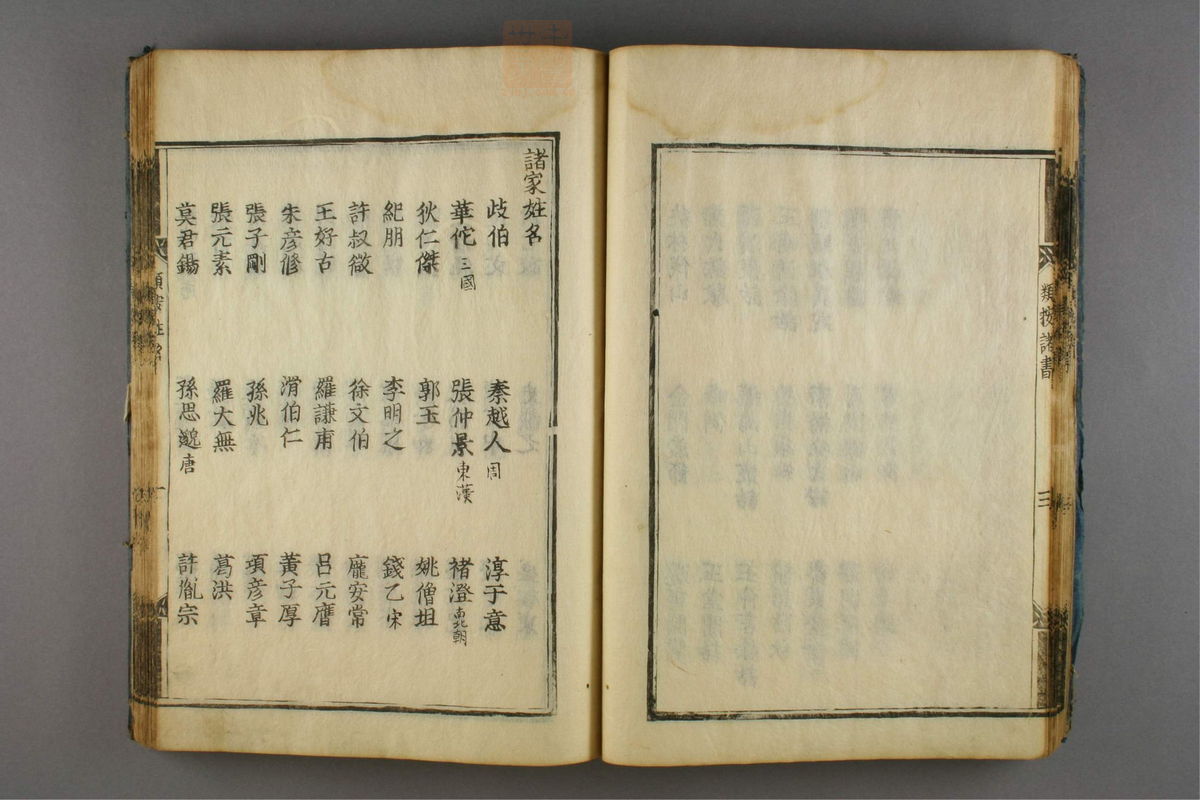 類按諸書
三
諸家姓名
歧伯 秦越人周 淳于意
華佗三國 張仲景東漢 褚澄南北朝
狄仁傑 郭玉 姚僧坦
紀朋 李明之 錢乙宋
許叔微 徐文伯 龐安常
王好古 羅謙甫 呂元膺
朱彦修 滑伯仁 黃子厚
張子剛 孫兆 項彦章
張元素 羅大無 葛洪
莫君錫 孫思邈唐 許胤宗
姓名
一